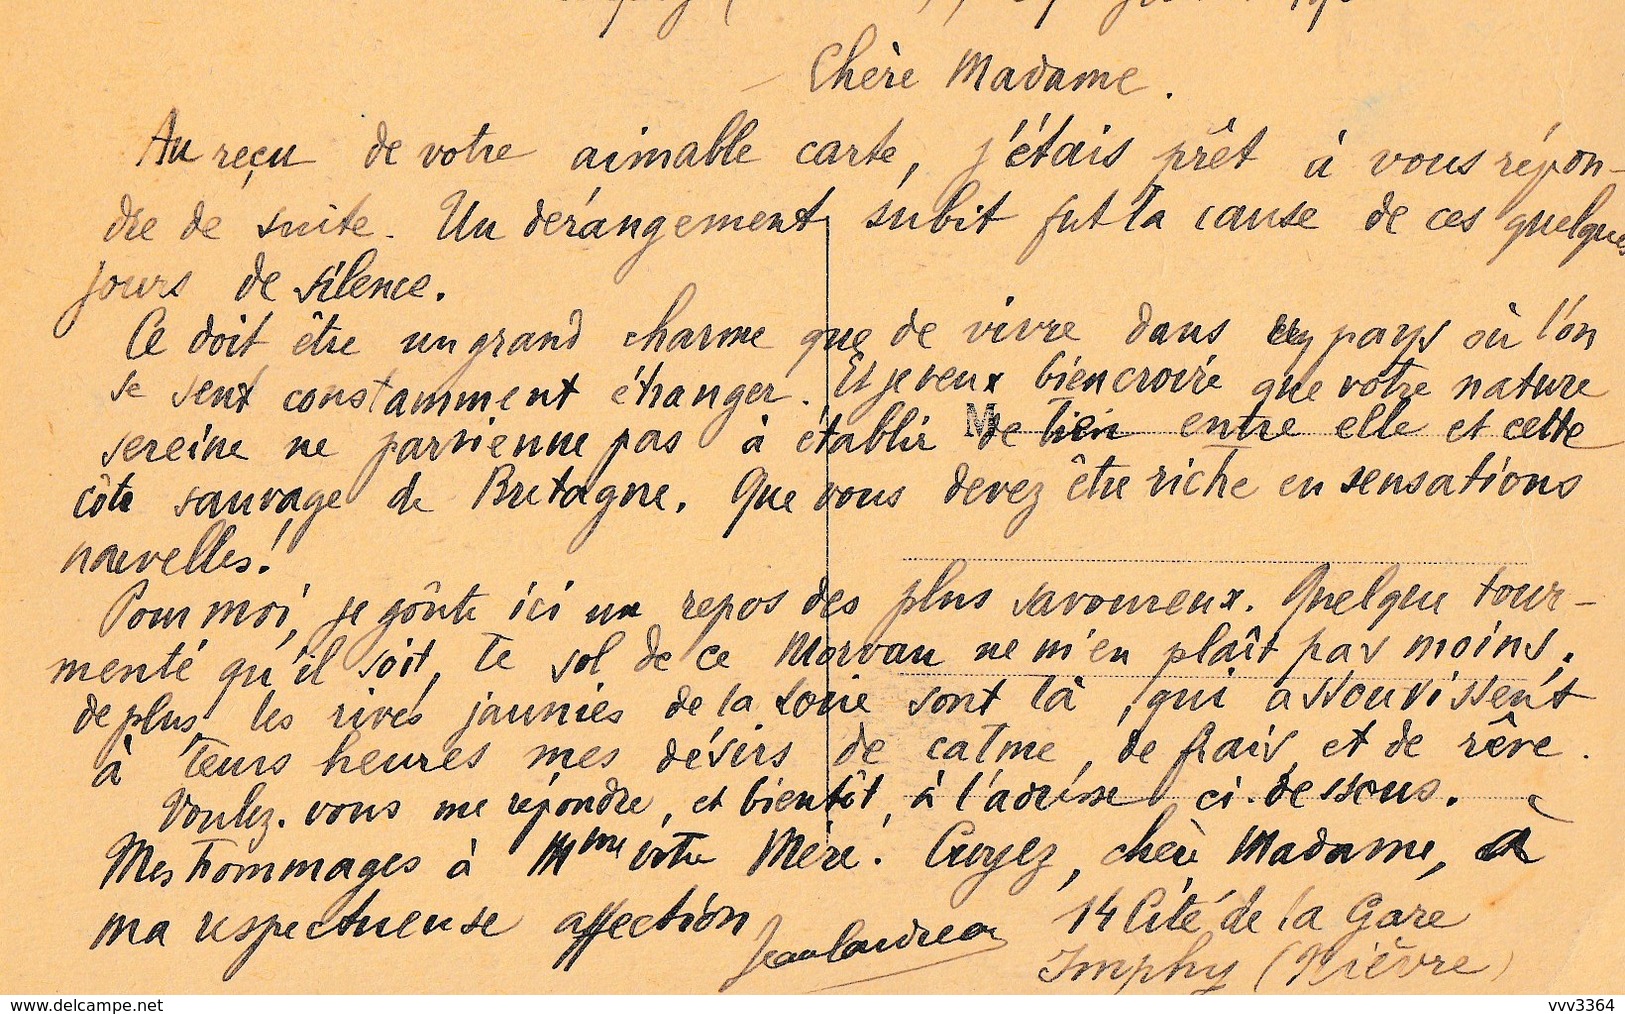 Chère Madame.
Au reçu de votre aimable carte, j'étais prêt à vous répon-
dre de suite. Un dérangement subit fut la cause de ces quelques
jours de silence.
Ce doit être un grand charme que de vivre dans un pays où l'on
se sent constamment étranger. Et je veux bien croire que votre nature
sereine ne parvienne pas à établir de lien entre elle et cette
M
côte sauvage de Bretagne. Que vous devez être riche en sensations
nouvelles!
Pour moi, je goûte ici un repos des plus savoureux. Quelque tour-
menté qu'il soit, le sol de ce Morvan ne m'en plaît pas moins.
de plus, les rives jaunies de la Loire sont là, qui assouvissent
à leurs heures mes désirs de calme, de frais, et de rêve.
Voulez-vous me répondre, et bientôt, à l'adresse ci-dessous.
Mes hommages à Mme votre Mère. Croyez, chère Madame, à
ma respectueuse affection
14 Cité de la Gare
Imphy (Nièvre)
www.delcampe.net
vvv3364